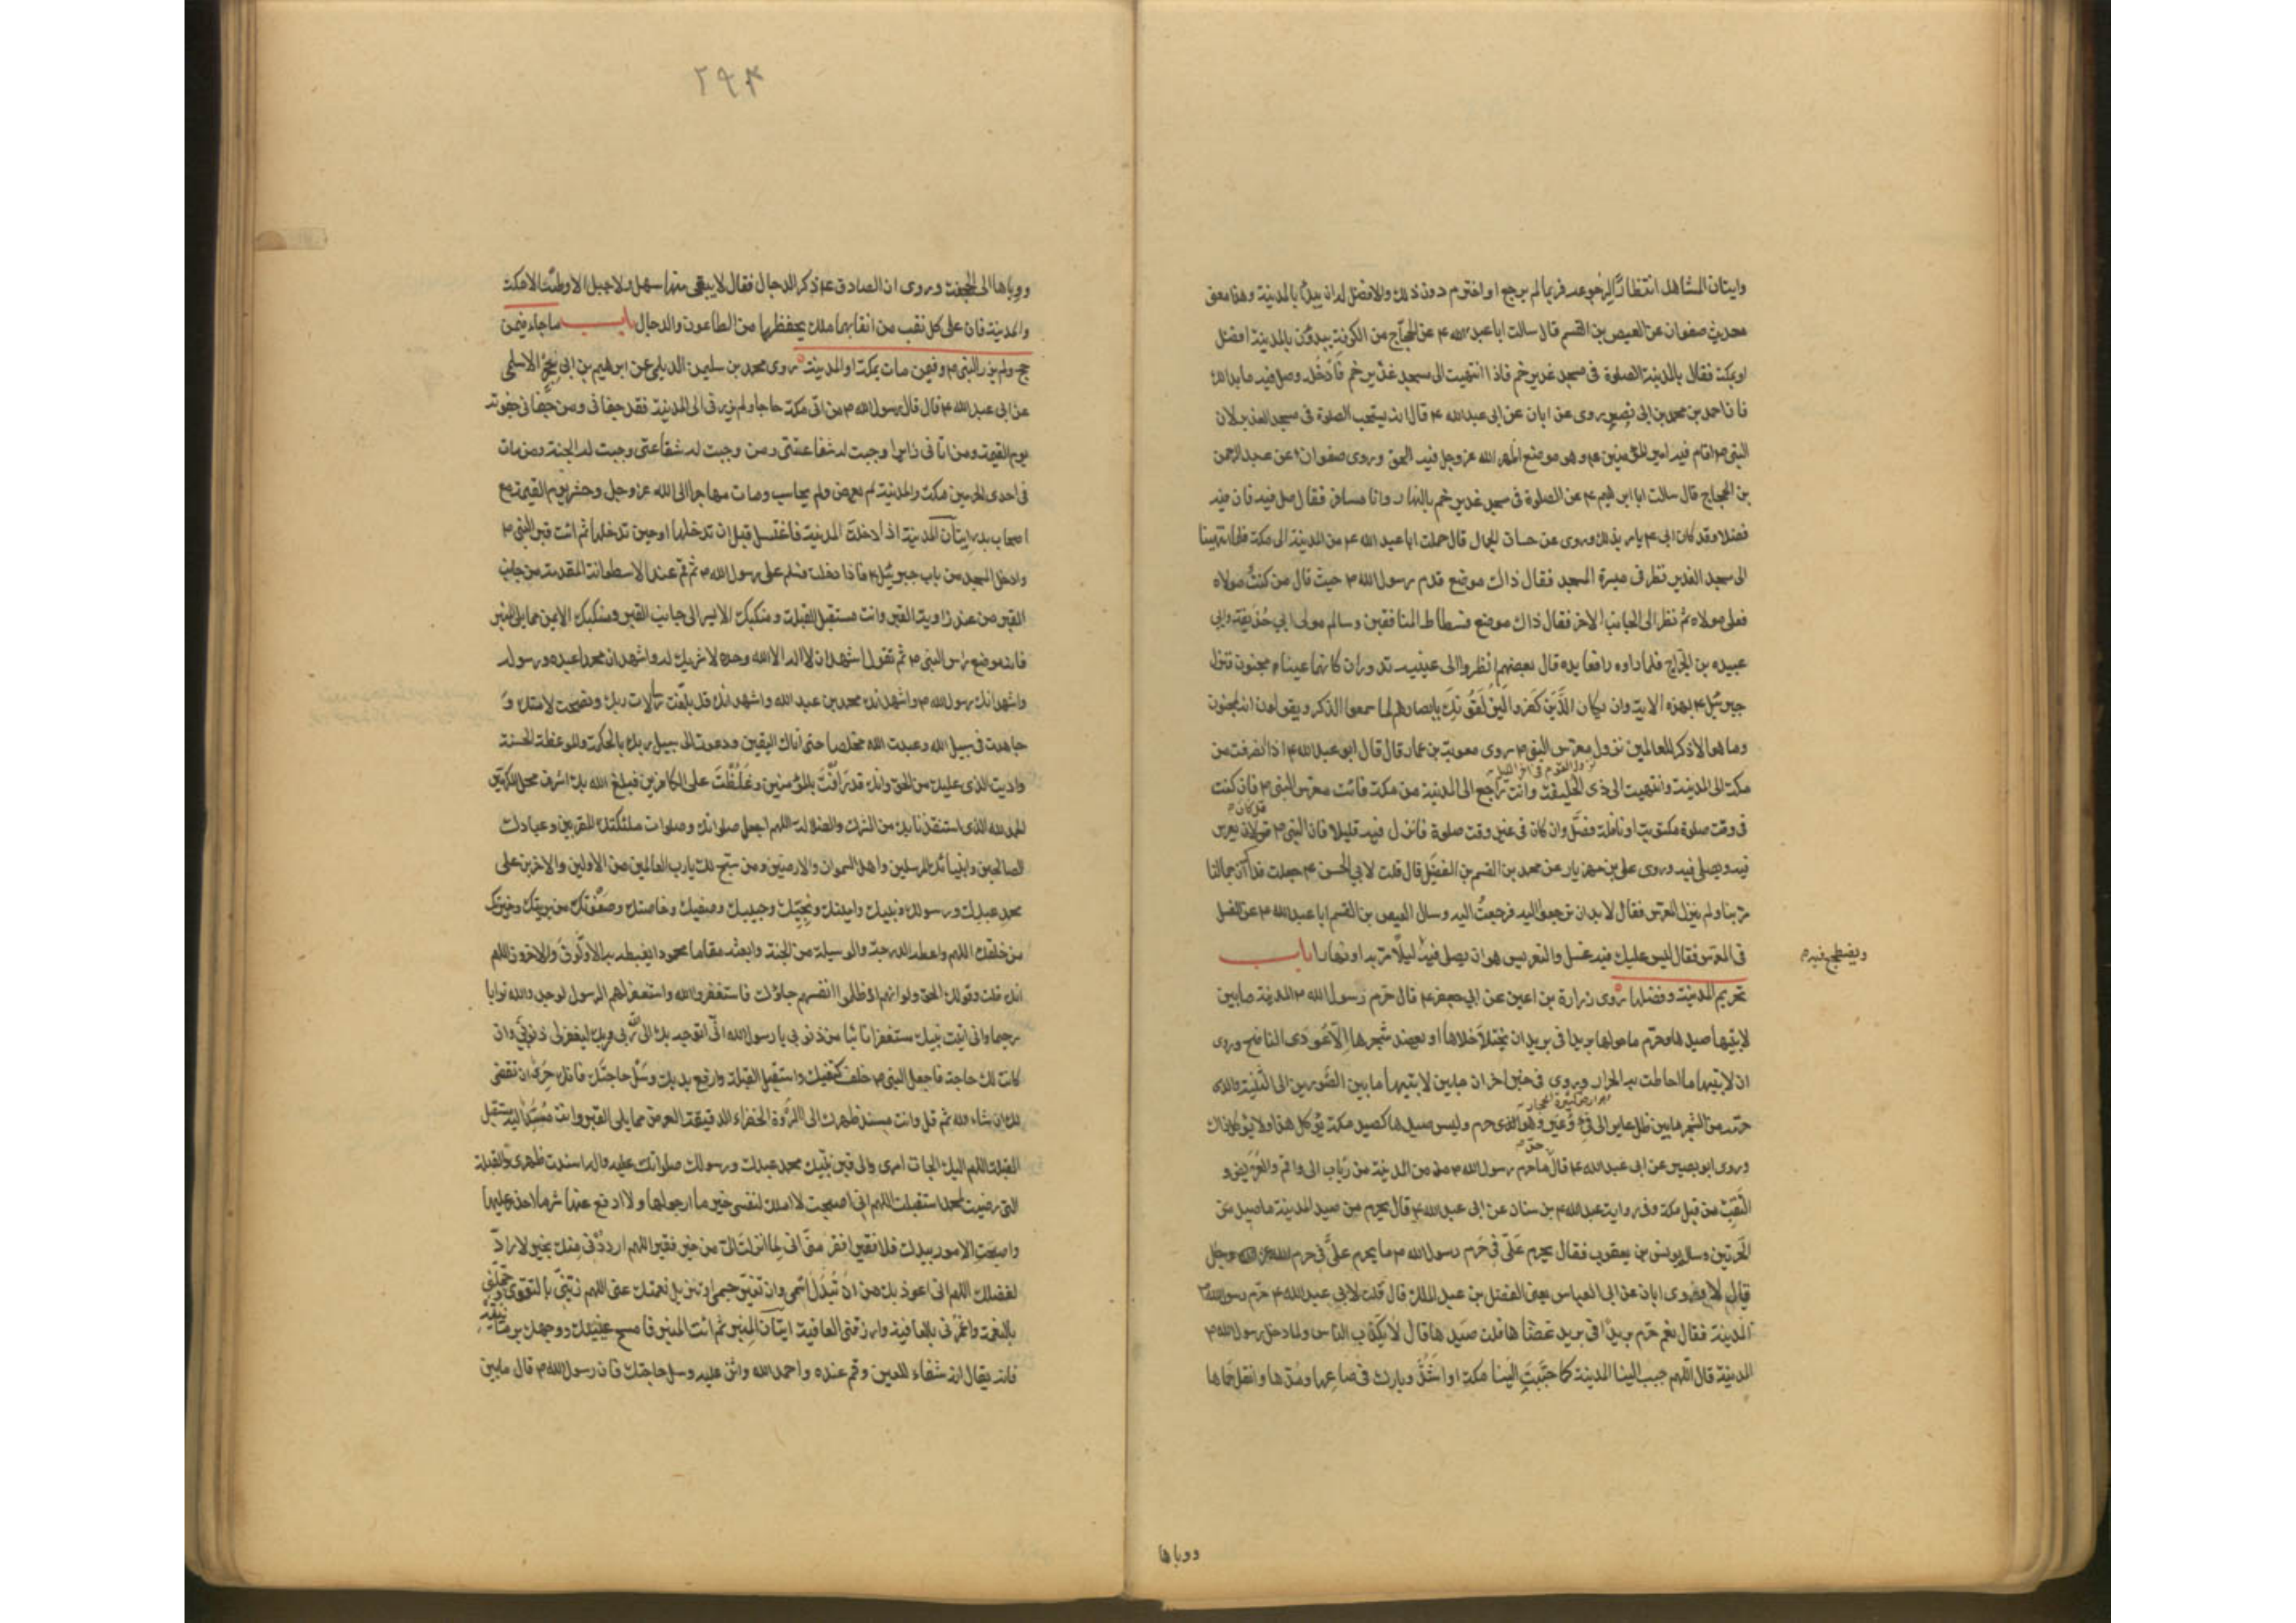 وإيتان المشاهد انتظارا للرجوع بعد فربما لم يرجع او اخترم دون ذلك والافضل له ان يبدأ بالمدينة وهذا معنى
محديث صفوان عن العيص بن القسم قال سالت ابا عبد الله ع عن الحجاج من الكوفة يبدؤن بالمدينة افضل
او بمكة فقال بالمدينة الصلوة فى مسجد غدير خم فاذا انتهيت الى مسجد غدير خم فادخله وصل فيه ما بدالك
فان احمد بن محمد بن ابى نصر روى عن ابان عن ابى عبد الله ع قال انه يستحب الصلوة فى مسجد الغدير لان
النبى ص اقام فيه امير المؤمنين ع وهو موضع اظهر الله عز وجل فيه الحق وروى صفوان عن عبد الرحمن
بن الحجاج قال سالت ابا ابرهيم ع عن الصلوة فى مسجد غدير خم بالنهار وانا مسافر فقال صل فيه فان فيه
فضلا وقد كان ابى ع يامر بذلك وروى عن حسان الجمال قال حملت ابا عبد الله ع من المدينة الى مكة فلما انتهينا
الى مسجد الغدير نظر فى ميسرة المسجد فقال ذاك موضع قدم رسول الله ص حيث قال من كنت مولاه
فعلى مولاه ثم نظر الى الجانب الاخر فقال ذاك موضع فسطاط المنافقين وسالم مولى ابي حذيفة وابي
عبيده بن الجراح فلما راوه رافعا يده قال بعضهم انظروا الى عينيه تدوران كانهما عينا مجنون فنزل
جبرئيل ع بهذه الاية وان يكاد الذين كفروا ليزلقونك بابصارهم لما سمعوا الذكر ويقولون انه لمجنون
وما هو الا ذكر للعالمين نزول معرس النبى ص روى معوية بن عمار قال قال ابو عبد الله ع اذا انصرفت من
نزول القوم فى اخر الليل
مكة الى المدينة وانتهيت الى ذى الحليفة وانت راجع الى المدينة من مكة فائت معرس النبى ص فان كنت
فى وقت صلوة مكتوبة او نافلة فصل وان كان فى غير وقت صلوة فانزل فيه قليلا فان النبى ص قد كان يعرس
فيه ويصلى فيه وروى على بن مهزيار عن محمد بن القسم بن الفضيل قال قلت لابي الحسن ع جعلت فداك ان جمالنا
مر بنا ولم ينزل المعرس فقال لا بد ان ترجعوا اليه فرجعت اليه وسال العيص بن القسم ابا عبد الله ع عن الغسل
فى المعرس فقال ليس عليك فيه غسل والتعريس هو ان يصلى فيه ليلا مر به او نهارا باب
ويضطجع فيه
تحريم المدينة وفضلها روى زرارة بن اعين عن ابي جعفر ع قال حرم رسول الله ص المدينة ما بين
لابتيها صيدها وحرم ما حولها بريدا فى بريد ان يختلا خلاها او يعضد شجرها الا عودى الناضح وروى
ان لابتيها ما احاطت به الحرار وروى فى خبر اخر ان ما بين لابتيها ما بين الصورين الى الثنية والذى
حرمه من الشجر ما بين ظل عاير الى فئ وعير وهو الذى حرم وليس صيدها كصيد مكة يؤكل هذا ولا يؤكل ذاك
وروى ابو بصير عن ابى عبد الله ع قال حد ما حرم رسول الله ص من المدينة من رباب الى واقم والعريض و
النقب من قبل مكة وفى رواية عبد الله بن سنان عن ابى عبد الله ع قال يحرم من صيد المدينة ما صيد بين
الحرتين وسال يونس بن يعقوب فقال يحرم على فى حرم رسول الله ص ما يحرم على فى حرم الله عز وجل
قال لا وروى ابان عن ابى العباس يعنى الفضل بن عبد الملك قال قلت لابي عبد الله ع حرم رسول الله ص
المدينة فقال نعم حرم بريدا فى بريد عضاها قلت صيدها قال لا يكذب الناس ولما دخل رسول الله ص
المدينة قال اللهم حبب الينا المدينة كما حببت الينا مكة او اشد وبارك فى صاعها ومدها وانقل حماها
ووباها
٢٩٣
ووباها الى الجحفة وروى ان الصادق ع ذكر الدجال فقال لا يبقى منها سهل ولا جبل الا وطئه الا مكة
والمدينة فان على كل نقب من انقابهما ملك يحفظها من الطاعون والدجال باب ما جاء فيمن
حج ولم يزر النبى ص وفيمن مات بمكة او المدينة روى محمد بن سليمن الديلمى عن ابرهيم بن ابى حجر الاسلمى
عن ابى عبد الله ع قال قال رسول الله ص من اتى مكة حاجا ولم يزرنى الى المدينة فقد جفانى ومن جفانى جفوته
يوم القيمة ومن اتانى زايرا وجبت له شفاعتى ومن وجبت له شفاعتى وجبت له الجنة ومن مات
فى احدى الحرمين مكة والمدينة لم يعرض ولم يحاسب ومات مهاجرا الى الله عز وجل وحشر يوم القيمة مع
اصحاب بدر إيتان المدينة اذا دخلت المدينة فاغتسل قبل ان تدخلها او حين تدخلها ثم ائت قبر النبى ص
وادخل المسجد من باب جبرئيل ع فاذا دخلت فسلم على رسول الله ص ثم قم عند الاسطوانة المقدمة من جانب
القبر من عند زاوية القبر وانت مستقبل القبلة ومنكبك الايسر الى جانب القبر ومنكبك الايمن مما يلى المنبر
فانه موضع راس النبى ص ثم تقول اشهد ان لا اله الا الله وحده لا شريك له واشهد ان محمدا عبده ورسوله
واشهد انك رسول الله ص واشهد انك محمد بن عبد الله واشهد انك قد بلغت رسالات ربك ونصحت لامتك و
جاهدت فى سبيل الله وعبدت الله مخلصا حتى اتاك اليقين ودعوت الى سبيل ربك بالحكمة والموعظة الحسنة
واديت الذى عليك من الحق وانك قد رافت بالمؤمنين وغلظت على الكافرين فبلغ الله بك اشرف محل المكرمين
الحمد لله الذى استنقذنا بك من الشرك والضلالة اللهم اجعل صلواتك وصلوات ملئكتك المقربين وعبادك
الصالحين وانبيائك المرسلين واهل السموات والارضين ومن سبح لك يا رب العالمين من الاولين والاخرين على
محمد عبدك ورسولك ونبيك وامينك ونجيك وحبيبك وصفيك وخاصتك وصفوتك من بريتك وخيرتك
من خلقك اللهم واعطه الدرجة والوسيلة من الجنة وابعثه مقاما محمودا يغبطه به الاولون والاخرون اللهم
انك قلت وقولك الحق ولو انهم اذ ظلموا انفسهم جاؤك فاستغفروا الله واستغفر لهم الرسول لوجدوا الله توابا
رحيما وانى اتيت نبيك مستغفرا تائبا من ذنوبي يا رسول الله انى اتوجه بك الى الله ربى وربك ليغفر لى ذنوبى وان
كانت لك حاجة فاجعل النبى ص خلف كتفيك واستقبل القبلة وارفع يديك وسل حاجتك فانك حرى ان تقضى
لك ان شاء الله ثم قل وانت مسند ظهرك الى المروة الخضراء الدقيقة العرض مما يلى القبر وانت مسند اليه مستقبل
القبلة اللهم اليك الجات امرى والى قبر نبيك محمد عبدك ورسولك صلواتك عليه واله اسندت ظهرى والقبلة
التى رضيت لمحمد استقبلت اللهم انى اصبحت لا املك لنفسى خير ما ارجو لها ولا ادفع عنها شر ما احذر عليها
واصبحت الامور بيدك فلا فقير افقر منى انى لما انزلت الى من خير فقير اللهم ارددنى منك بخير لا راد
لفضلك اللهم انى اعوذ بك من ان تبدل اسمى وان تغير جسمى او تزيل نعمتك عنى اللهم زينى بالتقوى وجملنى
بالنعمة واغمرنى بالعافية وارزقنى العافية إيتان المنبر ثم ائت المنبر فامسح عينيك ووجهك برمانتيه
فانه يقال انه شفاء للعين وقم عنده واحمد الله واثن عليه وسل حاجتك فان رسول الله ص قال ما بين